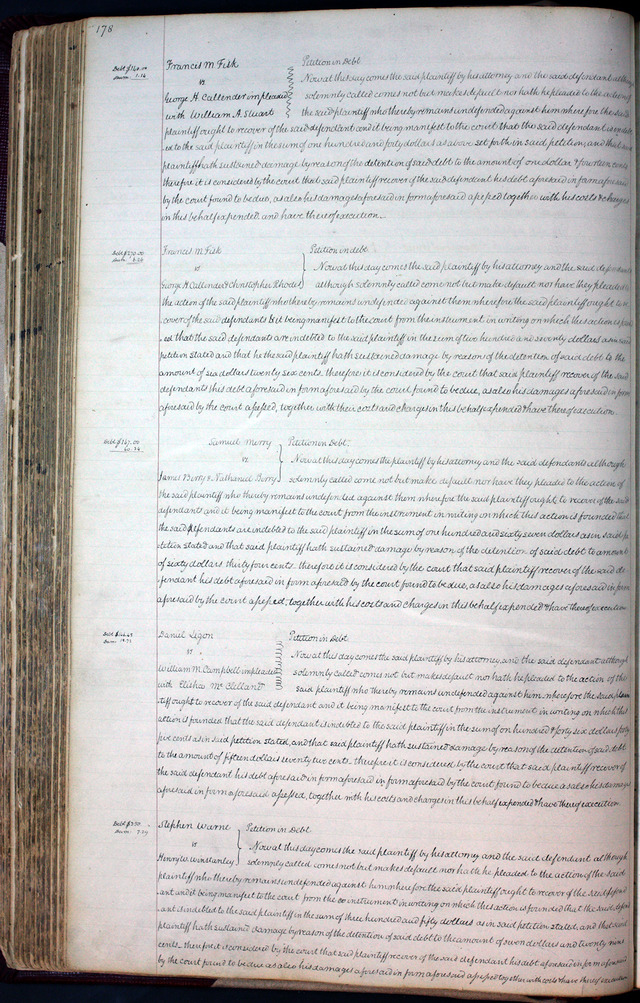 178
Debt $140.00
Dam 1.14
Francis M Fisk Petition in Debt
vs Now at this day comes the said plaintiff by his attorney and the said defendant although
George H. Callender impleaded solemnly called comes not but makes default nor hath he plead to the action of
with William A. Stuart the said plaintiff who thereby remains undefended against him wherefore the said
plaintiff ought to recover of the said defendant and it being manifest to the court that the said defendant is indebt
ed to the said plaintiff in the sum of one hundred and forty dollars as above set forth in said petition, and that said
plaintiff hath sustained damage by reason of the detention of said debt to the amount of one dollar & fourteen cents
therefore it is considered by the court that said plaintiff recover of the said defendant his debt aforesaid in form aforesaid
by the court found to be due, as also his damages aforesaid in form aforesaid assessed together with his costs & charges
in this behalf expended, and have thereof execution.
Debt $270.00
Dam 6.26
Francis M Fisk Petition in debt
vs Now at this day comes the said plaintiff by his attorney and the said defendants
George H Callender & Christopher Rhodes although solemnly called come not but make default nor have they pleaded to
the action of the said plaintiff who thereby remains undefended against them wherefore the said plaintiff ought to re
cover of the said defendants & it being manifest to the court from the instrument in writing on which this action is found
ed that the said defendants are indebted to the said plaintiff in the sum of two hundred and seventy dollars as in said
petition stated and that he the said plaintiff hath sustained damage by reason of the detention of said debt to the
amount of six dollars twenty six cents. therefore it is considered by the court that said plaintiff recover of the said
defendants this debt aforesaid in form aforesaid by the court found to be due, as also his damages aforesaid in form
aforesaid by the court assessed, together with their costs and charges in this behalf expended & have thereof execution.
Debt $167.00
60.34
Samuel Merry Petition in Debt.
vs Now at this day comes the plaintiff by his attorney and the said defendants although
James Berry & Nathaniel Berry solemnly called come not but make default nor have they pleaded to the action of
the said plaintiff who thereby remains undefended against them wherefore the said plaintiff ought to recover of the said
defendants and it being manifest to the court from the instrument in writing on which this action is founded that
the said defendants are indebted to the said plaintiff in the sum of one hundred and sixty seven dollars as in said pe
tition stated and that said plaintiff hath sustained damage by reason of the detention of said debt to amount
of sixty dollars thirty four cents. therefore it is considered by the court that said plaintiff recover of the said de
fendant his debt aforesaid in form aforesaid by the court found to be due, as also his damages aforesaid in form
aforesaid by the court assessed, together with his costs and charges in this behalf expended & have thereof execution
Debt $146.45
Dam 15.72
Daniel Ligon Petition in Debt
vs Now at this day comes the said plaintiff by his attorney, and the said defendant although
William M. Campbell impleaded solemnly called comes not but makes default nor hath he pleaded to the action of the
with Elisha McClelland said plaintiff who thereby remains undefended against him, wherefore the said plain
tiff ought to recover of the said defendant and it being manifest to the court from the instrument in writing on which this
action is founded that the said defendant is indebted to the said plaintiff in the sum of one hundred & forty six dollars forty
five cents as in said petition stated, and that said plaintiff hath sustained damage by reason of the detention of said debt
to the amount of fifteen dollars seventy two cents. therefore it is considered, by the court that said plaintiff recover of
the said defendant his debt aforesaid in form aforesaid in form aforesaid by the court found to be due as also his damages
aforesaid in form aforesaid assessed, together with his costs and charges in this behalf expended & have thereof execution
Debt $350
Dam 7.29
Stephen Warne Petition in Debt
vs Now at this day comes the said plaintiff by his attorney and the said defendant although
Henry W. Winstanley solemnly called comes not but makes default nor hath he pleaded to the action of the said
plaintiff who thereby remains undefended against him wherefore the said plaintiff ought to recover of the said defend
ant and it being manifest to the court from the instrument in writing on which this action is founded that the said defend
ant is indebted to the said plaintiff in the sum of three hundred and fifty dollars as in said petition stated, and that said
plaintiff hath sustained damage by reason of the detention of said debt to the amount of seven dollars and twenty nine
cents. therefore it is considered by the court that said plaintiff recover of the said defendant his debt aforesaid in form aforesaid
by the court found to be due as also his damages aforesaid in form aforesaid assessed together with costs & have thereof execution